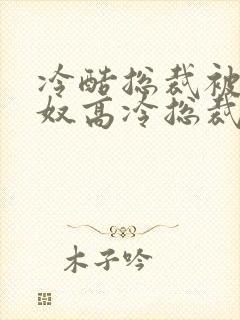 冷酷总裁被
奴高冷总裁
木子吟